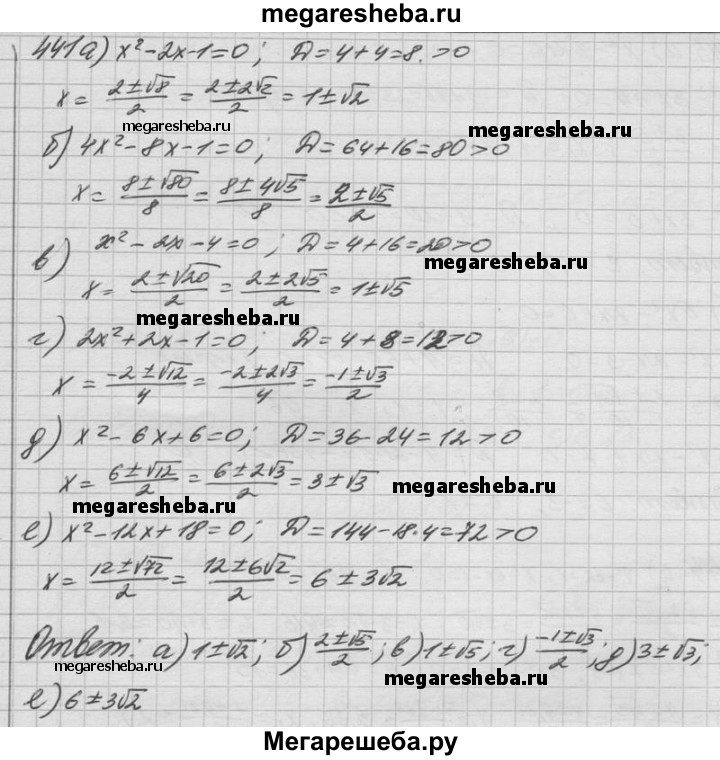 megaresheba.ru
441 а) x² - 2x - 1 = 0; Д = 4 + 4 = 8. > 0
x = (2 ± √8)/2 = (2 ± 2√2)/2 = 1 ± √2
megaresheba.ru
megaresheba.ru
б) 4x² - 8x - 1 = 0; Д = 64 + 16 = 80 > 0
x = (8 ± √80)/8 = (8 ± 4√5)/8 = (2 ± √5)/2
в) x² - 2x - 4 = 0; Д = 4 + 16 = 20 > 0
megaresheba.ru
x = (2 ± √20)/2 = (2 ± 2√5)/2 = 1 ± √5
megaresheba.ru
г) 2x² + 2x - 1 = 0; Д = 4 + 8 = 12 > 0
x = (-2 ± √12)/4 = (-2 ± 2√3)/4 = (-1 ± √3)/2
д) x² - 6x + 6 = 0; Д = 36 - 24 = 12 > 0
x = (6 ± √12)/2 = (6 ± 2√3)/2 = 3 ± √3
megaresheba.ru
megaresheba.ru
е) x² - 12x + 18 = 0; Д = 144 - 18·4 = 72 > 0
x = (12 ± √72)/2 = (12 ± 6√2)/2 = 6 ± 3√2
Ответ: а) 1 ± √2; б) (2 ± √5)/2; в) 1 ± √5; г) (-1 ± √3)/2; д) 3 ± √3;
megaresheba.ru
megaresheba.ru
е) 6 ± 3√2
Мегарешеба.ру